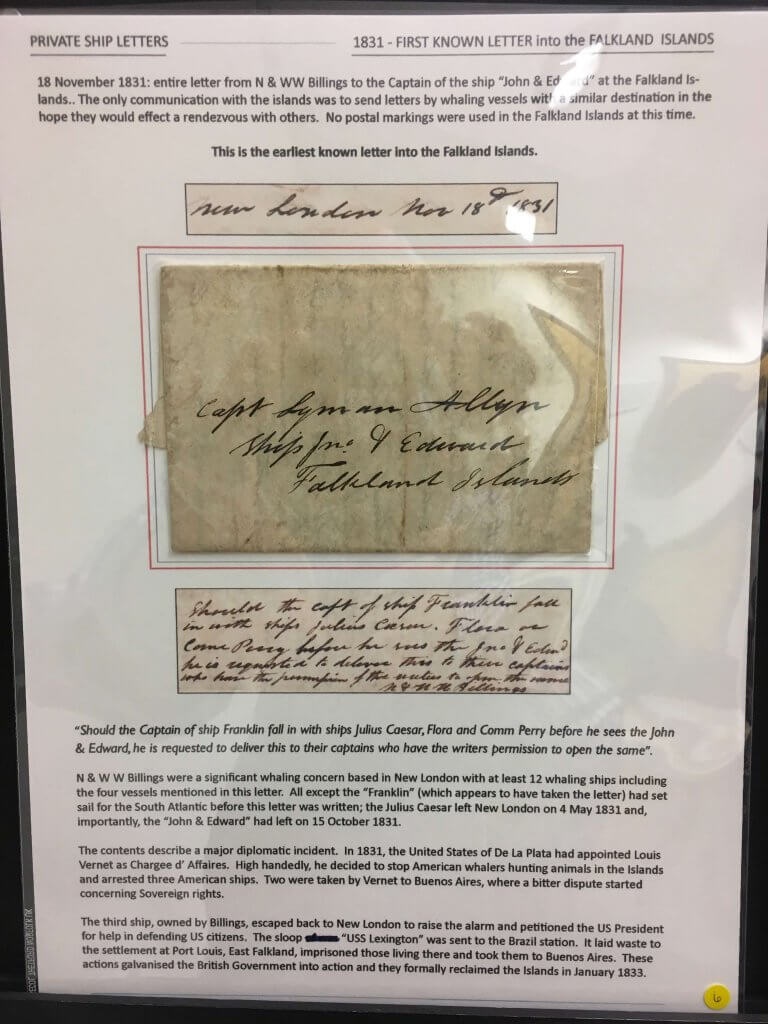 PRIVATE SHIP LETTERS
1831 - FIRST KNOWN LETTER into the FALKLAND ISLANDS
18 November 1831: entire letter from N & WW Billings to the Captain of the ship "John & Ed" at the Falkland Is-
lands.. The only communication with the islands was to send letters by whaling vessels with a similar destination in the
hope they would effect a rendezvous with others. No postal markings were used in the Falkland Islands at this time.
This is the earliest known letter into the Falkland Islands.
New London Nov 18d 1831
Capt Lyman Allyn
Ship Jno & Edward
Falkland Islands
Should the capt of ship Franklin fall
in with ships Julius Caesar. Flora or
Come Perry before he sees the Jno & Edwd
he is requested to deliver this to their captains
who have the permission of the writers to open the same
N & W W Billings
"Should the Captain of ship Franklin fall in with ships Julius Caesar, Flora and Comm Perry before he sees the John
& Edward, he is requested to deliver this to their captains who have the writers permission to open the same".
N & W W Billings were a significant whaling concern based in New London with at least 12 whaling ships including
the four vessels mentioned in this letter. All except the "Franklin" (which appears to have taken the letter) had set
sail for the South Atlantic before this letter was written; the Julius Caesar left New London on 4 May 1831 and,
importantly, the "John & Edward" had left on 15 October 1831.
The contents describe a major diplomatic incident. In 1831, the United States of De La Plata had appointed Louis
Vernet as Chargee d' Affaires. High handedly, he decided to stop American whalers hunting animals in the Islands
and arrested three American ships. Two were taken by Vernet to Buenos Aires, where a bitter dispute started
concerning Sovereign rights.
The third ship, owned by Billings, escaped back to New London to raise the alarm and petitioned the US President
for help in defending US citizens. The sloop "USS Lexington" was sent to the Brazil station. It laid waste to
the settlement at Port Louis, East Falkland, imprisoned those living there and took them to Buenos Aires. These
actions galvanised the British Government into action and they formally reclaimed the Islands in January 1833.
6